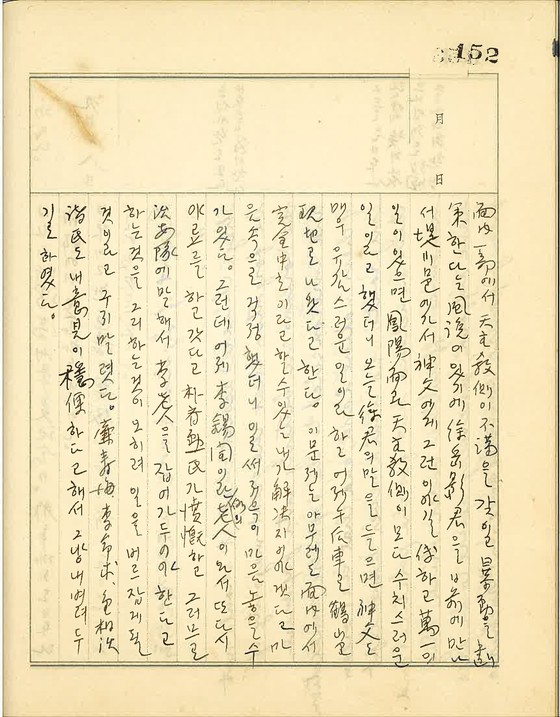 152
月
日
面內 一部에서 天主敎側이 不滿을 갖일 暴動을 劃
策한다는 風說이 있기에 徐岳彰君을 日前에 만나
서 堤川邑에 가서 神父에게 그런 이야길 傳하고 萬一의
일이 있으면 鳳陽面과 天主敎側이 모다 수치스러운
일이라고 했더니 오늘 徐君의 말을 들으면 神父도
맹우 유감스러운 일이라 하고 어제 午后車로 鶴山
現地로 나왔다고 한다. 이 문제는 아무래도 面內에서
完全中立이라고 할 수 있는 내가 解決지어야겠다고 마
음속으로 걱정했더니 이럴써 저윽이 마음 놓을 수
가 있다. 그런데 어제 李錫同이란 老人이 와서 또다시
야료를 하고 갔다고 朴春 氏가 憤慨하고 그러므로
治安隊에 말해서 李老人을 잡어 가두어야 한다고
하는 것을 그리하는 것이 오히려 일을 버르집게 될
것이라고 구지 말렸다. 李
諸氏도 내 意見이 穩便하다고 해서 그냥 내버려 두
기로 하였다.